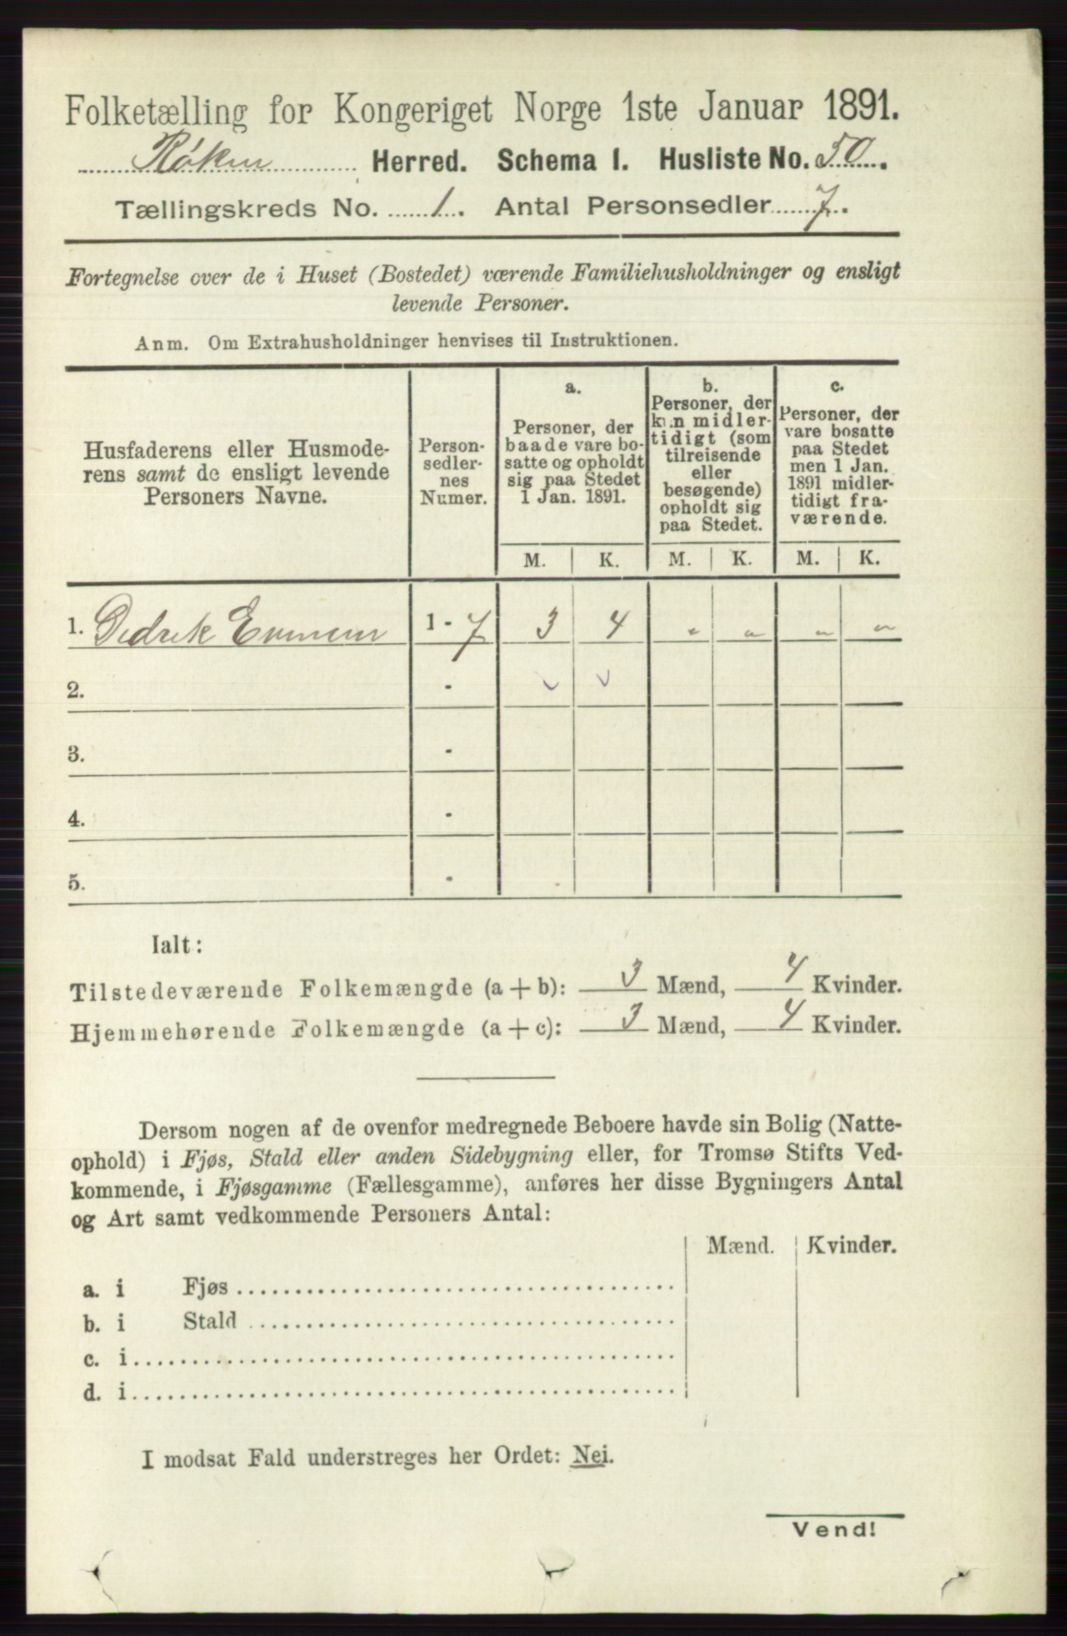 Folketælling for Kongeriget Norge 1ste Januar 1891.
Røken Herred. Schema I. Husliste No. 50.
Tællingskreds No. 1. Antal Personsedler 7.
Fortegnelse over de i Huset (Bostedet) værende Familiehusholdninger og ensligt
levende Personer.
Anm. Om Extrahusholdninger henvises til Instruktionen.
Husfaderens eller Husmode-
rens samt de ensligt levende
Personers Navne.
Person-
sedler-
nes
Numer.
a.
Personer, der
baade vare bo-
satte og opholdt
sig paa Stedet
1 Jan. 1891.
b.
Personer, der
kun midler-
tidigt (som
tilreisende
eller
besøgende)
opholdt sig
paa Stedet.
c.
Personer, der
vare bosatte
paa Stedet
men 1 Jan.
1891 midler-
tidigt fra-
værende.
M. K. M. K. M. K.
1. Didrik 1 - 7 3 4 " " " "
2. -
3. -
4. -
5. -
Ialt:
Tilstedeværende Folkemængde (a + b): 3 Mænd, 4 Kvinder.
Hjemmehørende Folkemængde (a + c): 3 Mænd, 4 Kvinder.
Dersom nogen af de ovenfor medregnede Beboere havde sin Bolig (Natte-
ophold) i Fjøs, Stald eller anden Sidebygning eller, for Tromsø Stifts Ved-
kommende, i Fjøsgamme (Fællesgamme), anføres her disse Bygningers Antal
og Art samt vedkommende Personers Antal:
Mænd. Kvinder.
a. i Fjøs
b. i Stald
c. i
d. i
I modsat Fald understreges her Ordet: Nei.
Vend!